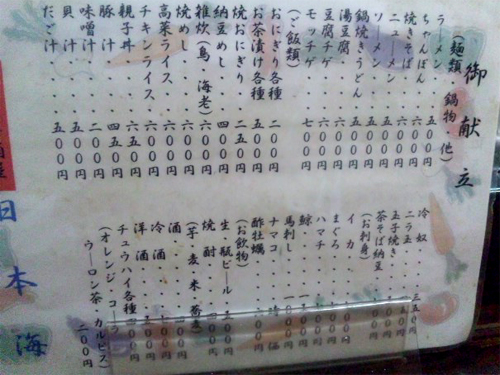 御献立
(麺類 鍋物・他)
ラーメン・・五〇〇円
ちゃんぽん・六〇〇円
焼きそば・・六〇〇円
ニューメン・五〇〇円
ソーメン・・五〇〇円
鍋焼きうどん・六〇〇円
湯豆腐・・・五〇〇円
豆腐チゲ・・六〇〇円
モッチゲ・・七〇〇円
(ご飯類)
おにぎり各種・二〇〇円
お茶漬け各種・五〇〇円
焼おにぎり・・二五〇円
納豆めし・・・四〇〇円
雑炊(鳥・海老)六〇〇円
焼めし・・・・六〇〇円
高菜ライス・・六〇〇円
チキンライス・六〇〇円
親子丼・・・・六五〇円
豚汁・・・・・四五〇円
味噌汁・・・・二〇〇円
貝汁・・・・・五〇〇円
だご汁・・・・五〇〇円
冷奴・・・三五〇円
ニラ玉
玉子焼き
茶そば納豆
(お刺身)
イカ
まぐろ
ハマチ
鯨
馬刺し・・一〇〇〇円
ナマコ
酢牡蠣・・六〇〇円
(お飲物)
生・瓶ビール
焼酎
(芋・麦・米・蕎麦)
酒
冷酒
洋酒
チュウハイ各種
(オレンジ・コーラ
ウーロン茶・カルピス)
二〇〇円
日本海